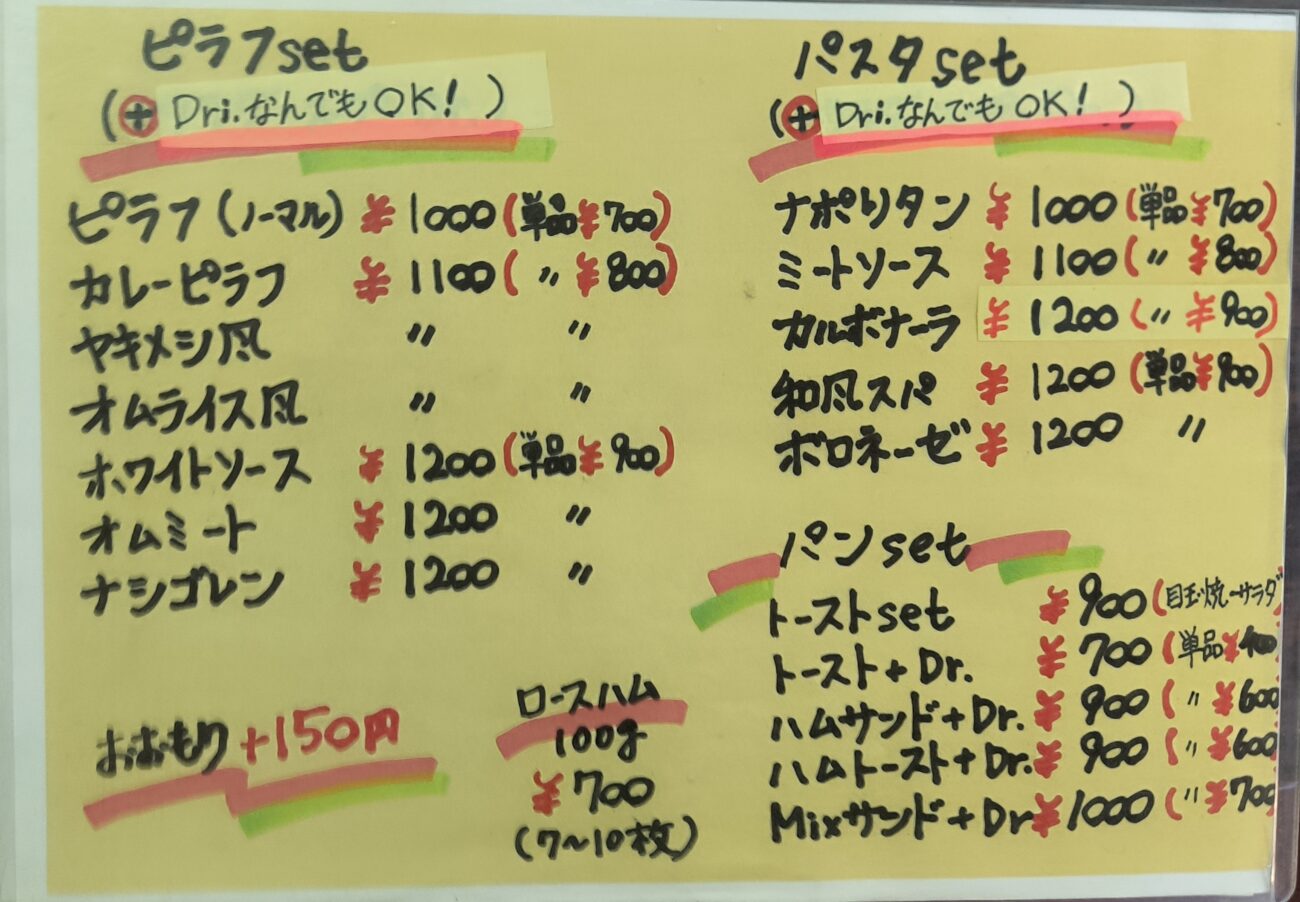 ピラフset
(+ Dri.なんでもOK!)
ピラフ(ノーマル) ¥1000(単品¥700)
カレーピラフ ¥1100(〃¥800)
ヤキメシ風 〃 〃
オムライス風 〃 〃
ホワイトソース ¥1200(単品¥900)
オムミート ¥1200 〃
ナシゴレン ¥1200 〃
おおもり+150円
ロースハム
100g
¥700
(7~10枚)
パスタset
(+ Dri.なんでもOK!)
ナポリタン ¥1000(単品¥700)
ミートソース ¥1100(〃¥800)
カルボナーラ ¥1200(〃¥900)
和風スパ ¥1200(単品¥900)
ボロネーゼ ¥1200 〃
パンset
トーストset ¥900(目玉焼-サラダ
トースト+Dr. ¥700(単品¥400
ハムサンド+Dr. ¥900(〃¥600
ハムトースト+Dr. ¥900(〃¥600
Mixサンド+Dr ¥1000(〃¥700